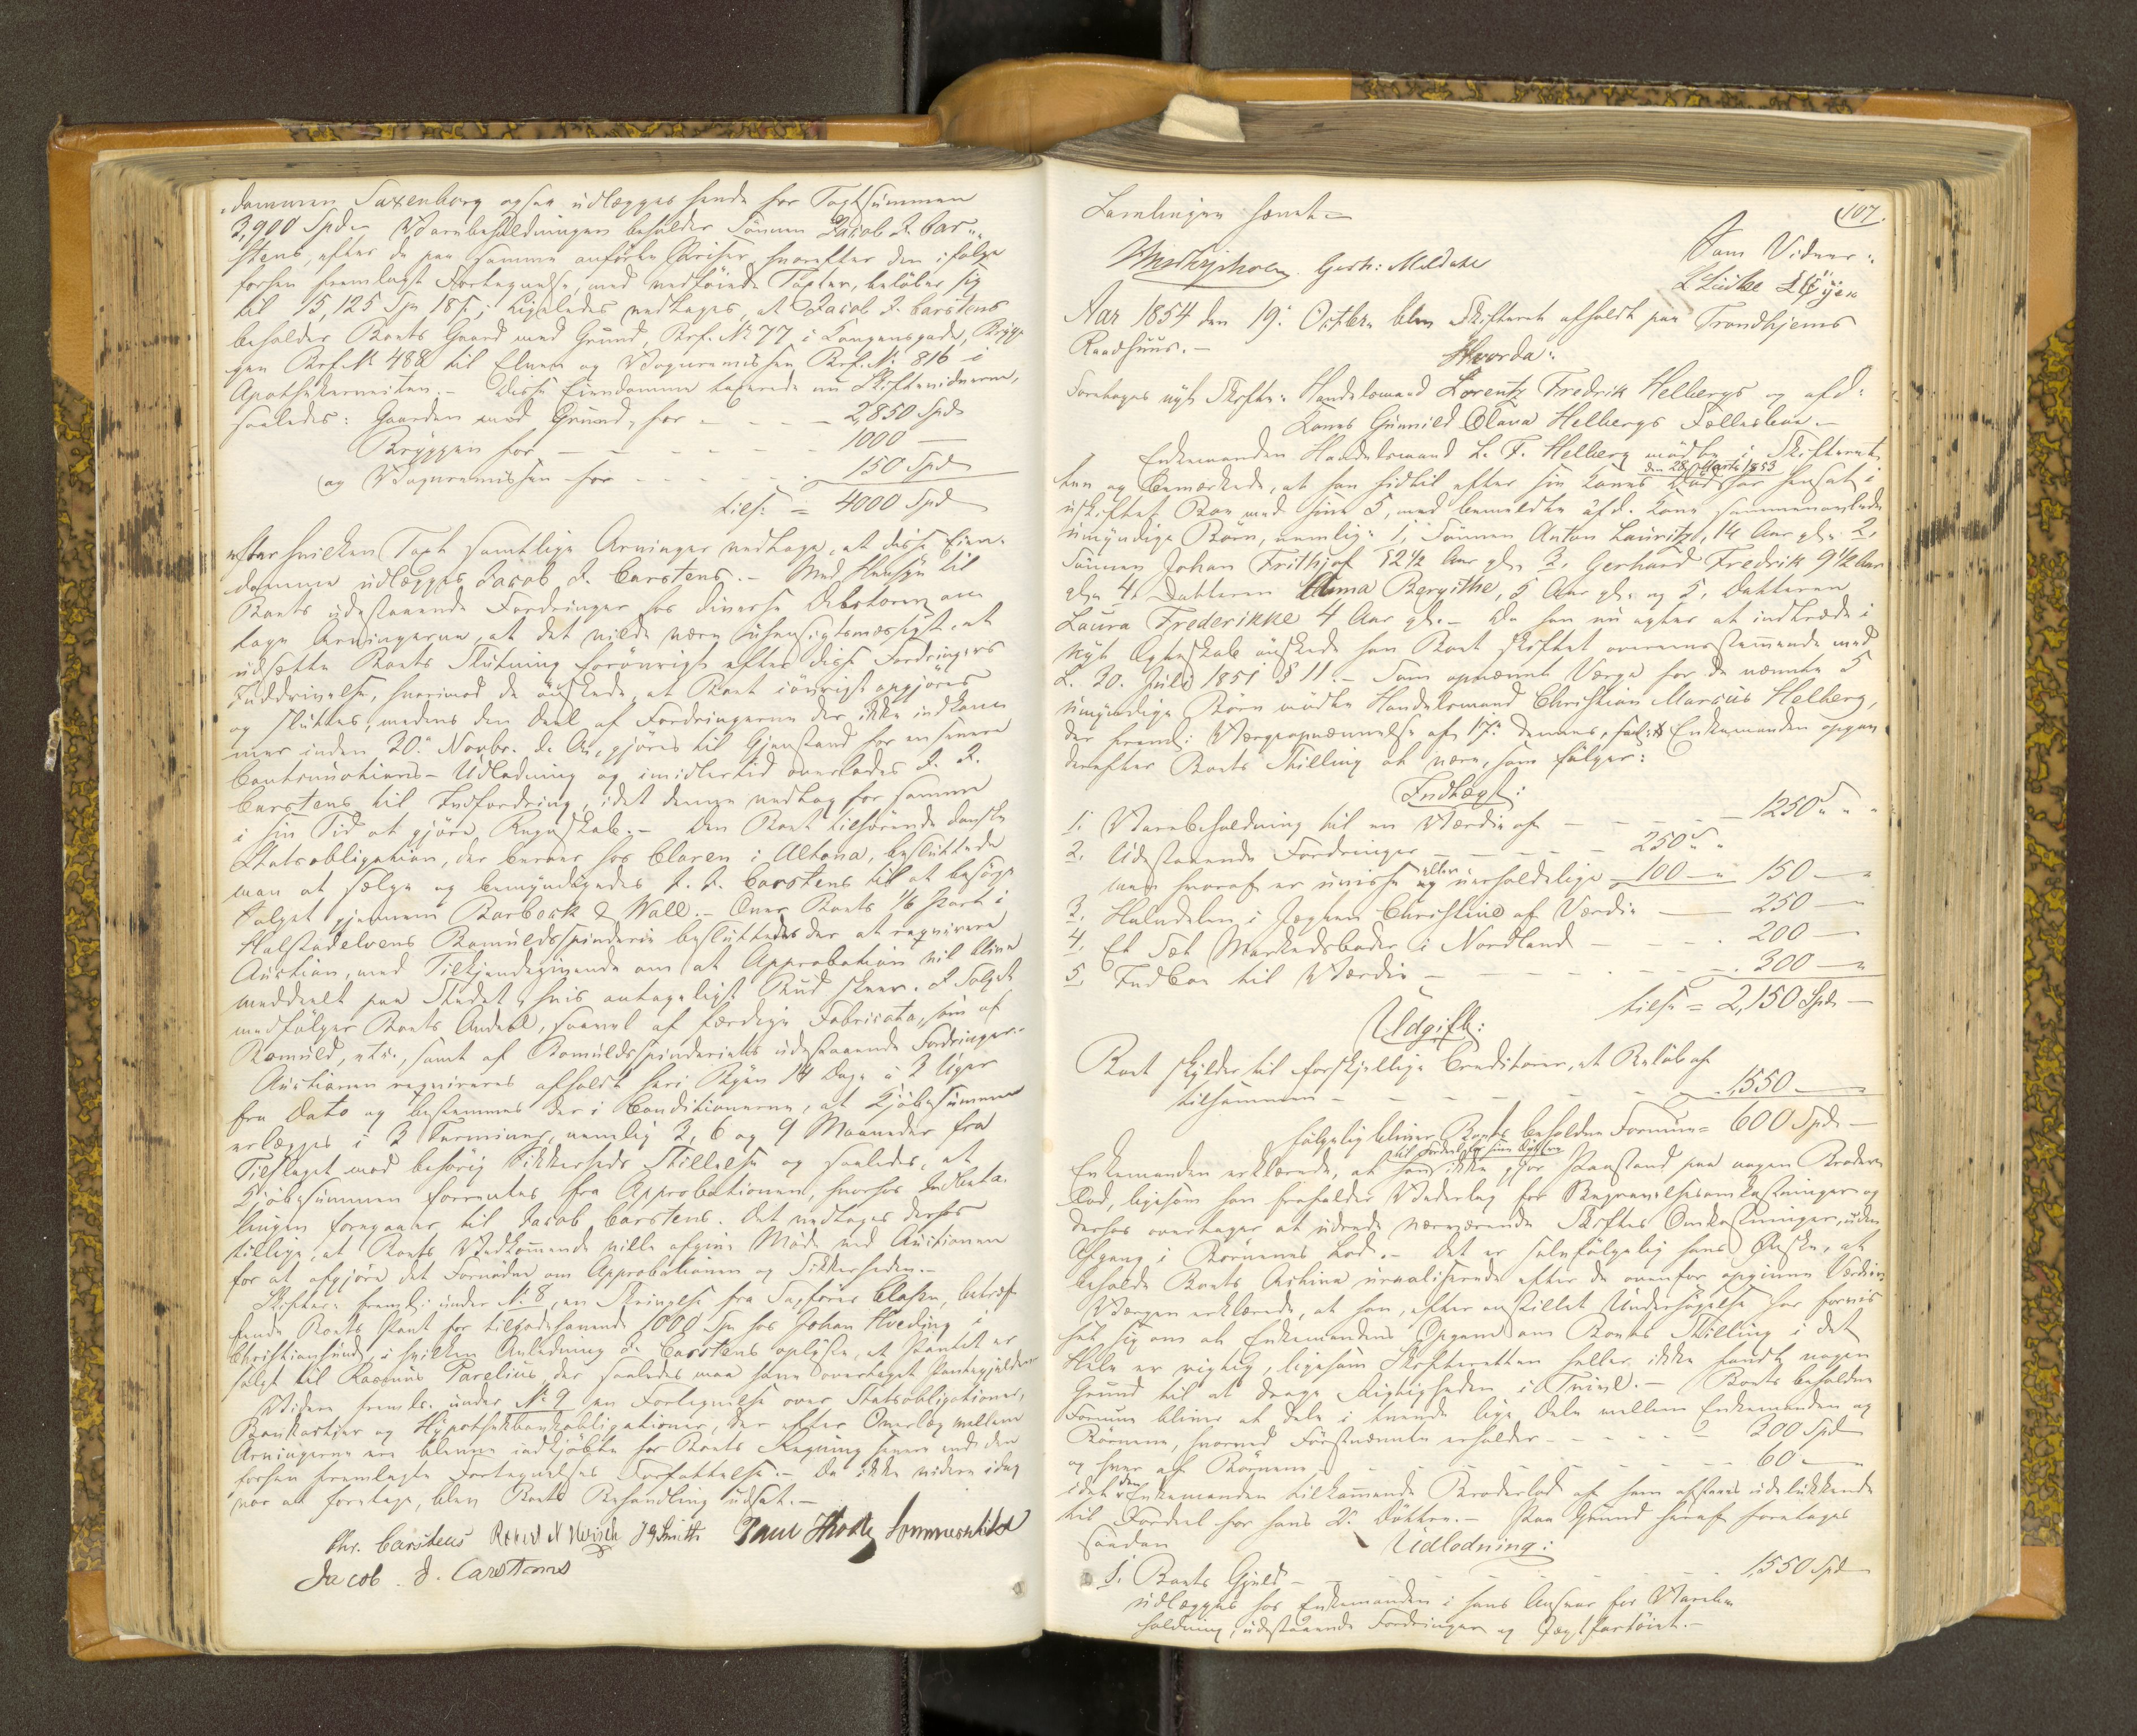 dommen Saxenborg ogsaa udlægges hende for Taxtsummen
3,900 Spd. Varebeholdningen beholder Sønnen Jacob D. Car-
stens, efter de paa samme anførte Priser, hvorefter den ifølge
forhen fremlagt Fortegnelse, med vedføiede Taxter, beløber sig
til 15,125 Spd 18 s; ligeledes vedtages, at Jacob D. Carstens
beholder Boets Gaard med Grund, Brf. No 77 i Kongensgade, Bryg-
gen Brf. No 488 til Elven og Vognremissen Brf. No 816 i
Apothekerveiten. - Disse Eiendomme taxerede nu Skiftevidnerne,
saaledes: Gaarden med Grund, for - 2,850 Spd
Bryggen for - 1000 -
og Vognremissen for - 150 Spd
tils: = 4000 Spd
efter hvilken Taxt samtlige Arvinger vedtage, at disse Eien-
domme udlægges Jacob D. Carstens. - Med Hensyn til
Boets udestaaende Fordringer hos diverse Debitorer an-
tage Arvingerne, at det vilde være uhensigtsmæssigt, at
udsætte Boets Slutning forøvrigt efter disse Fordringers
Inddrivelse, hvorimod de ønskede, at Boet iøvrigt opgjøres
og sluttes, medens den Deel af Fordringerne der ikke indkom-
mer inden 20de Novbr. d. A., gjøres til Gjenstand for en senere
Udlodning og imidlertid overlades J. D.
Carstens til Indfordring, idet denne vedtog for samme
i sin Tid at gjøre Regnskab. - Den Boet tilhørende danske
Statsobligation, der beroer hos Claren i Altona, besluttede
man at sælge og bemyndigedes J. D. Carstens til at besørge
Salget gjennem Burbock & Wall. - Over Boets 1/6 Part i
Halstadelvens Bomuldsspinderie besluttedes der at requirere
Auction, med Tilkjendegivende om at Approbation vil blive
meddeelt paa Stedet, hvis antageligt Bud skeer. I Salget
medfølger Boets Andeel, saavel af færdige Fabricata, som af
Bomuld, etc., samt af Bomuldsspinderiets udestaaende Fordringer.
Auctionen requireres afholdt her i Byen 14 Dage á 3 Uger
fra Dato og bestemmes der i Conditionerne, at Kjøbesummen
erlægges i 3 Terminer, nemlig 3, 6 og 9 Maaneder fra
Tilslaget mod behørig Sikkerheds Stillelse og saaledes, at
Kjøbesummen forrentes fra Approbationen, hvorhos Indbeta-
lingen foregaaer til Jacob Carstens. Det vedtoges derhos
tillige, at Boets Vedkommende ville afgive Møde ved Auctionen
for at afgjøre det Fornødne om Approbationen og Sikkerheden. -
Skifter: freml: under No 8, en Skrivelse fra Sagfører Clasen, betræf-
fende Boets Pant for tilgodehavende 1000 Spd hos Johan Hveding i
Christiansund, i hvilken Anledning J. Carstens oplyste, at Pantet er
solgt til Rasmus Parelius, der saaledes maa have overtaget Pantegjelden
Videre fremls. under No 9 en Fortegnelse over Statsobligationer,
Bankactier og Hypothekbankobligationer, der efter Overlæg mellem
Arvingerne ere blevne indkjøbte for Boets Regning senere end den
forhen fremlagte Fortegnelses Forfattelse. - Da ikke videre idag
var at foretage, blev Boets Behandling udsat. -
Chr. Carstens Robert N Hirsch J G Smith Paul Thode Sommerschild
Jacob. D. Carstens
107.
Samlingen hævet =
Gerh: Meldahl
Som Vidner:
L Lüdke
Aar 1854 den 19: Octbr. blev Skifteret afholdt paa Trondhjems
Raadhuus. -
Hvorda:
Foretages nyt Skifte: Handelsmand Lorentz Fredrik Helbergs og afd:
Kones Gunnild Olava Helbergs Fællesboe. -
Enkemanden Handelsmand L. F. Helberg mødte i Skifteret-
den 28 Marts 1853
ten og bemærkede, at han hidtil efter sin Kones Død har hensat i
uskiftet Boe med sine 5, med bemeldte afd. Kone sammenavlede
umyndige Børn, nemlig: 1, Sønnen Anton Lauritz, 14 Aar gl. 2,
Sønnen Johan Frithjof 12½ Aar gl., 3, Gerhard Fredrik 9½ Aar
gl., 4, Datteren Anna Bergithe, 5 Aar gl. og 5, Datteren
Laura Frederikke 4 Aar gl. - Da han nu agter at indtræde i
nyt Ægteskab ønskede han Boet skiftet overensstemmende med
L. 30. Juli 1851 § 11. - Som opnævnt Værge for de nævnte 5
umyndige Børn mødte Handelsmand Christian Marcus Helberg,
der freml: Værgeopnævnelse af 17de dennes. Enkemanden opgav
derefter Boets Stilling at være, som følger:
Indtægt:
1. Varebeholdning til en Værdie af - 1250 "
2. Udestaaende Fordringer - 250 "
men hvoraf er uvisse eller uerholdelige 100 - 150 -
3. Halvdelen i Jægten Christine af Værdie - 250 -
4. Et Sæt Markedsboder i Nordland - 200 -
5 Indboe til Værdie - 300 -
tils: = 2,150 Spd. -
Udgift:
Boet skylder til forskjellige Creditorer, et Beløb af
tilsammen - 1550 -
følgelig bliver Boets beholdne Formue = 600 Spd. -
til Fordeel for sine Døttre
Enkemanden erklærede, at han ikke gjør Paastand paa nogen Broder-
lod, ligesom han frafalder Vederlag for Begravelsesomkostninger og
derhos overtager at udrede nærværende Skiftes Omkostninger, uden
Afgang i Børnenes Lod. - Det er selvfølgelig hans Ønske, at
beholde Boets Activa urealiserede efter de ovenfor opgivne Værdier
Værgen erklærede, at han, efter anstillet Undersøgelse har forvis-
set sig om at Enkemandens Opgave om Boets Stilling i det
Hele er rigtig, ligesom Skifteretten heller ikke fandt nogen
Grund til at drage Rigtigheden i Tvivl. - Boets beholdne
Formue bliver at dele i tvende lige Dele mellem Enkemanden og
Børnene, hvorved Førstnævnte erholder - 300 Spd
og hver af Børnene - 60 -
idet den Enkemanden tilkommende Broderlod af ham afstaaes udelukkende
til Fordeel for hans 2de Døttre. - Paa Grund heraf foretages
saadan
Udlodning:
1. Boets Gjeld - 1,550 Spd
udlægges hos Enkemanden i hans Ansvar for Varebe-
holdning, udestaaende Fordringer og Jægtfartøiet. -